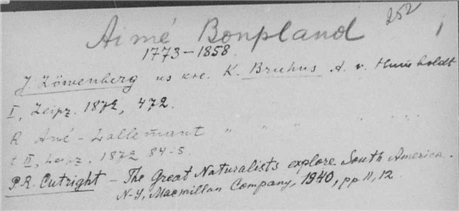 252
Aimé Bonpland
1773–1858
J Löwenberg us K. Bruhns A. v. Humboldt
I, Leipz. 1872, 472.
R Avé-Lallemant " " "
t II, Leipz. 1872 84-5.
P.R. Cutright – The Great Naturalists explore South America.
N-Y, Macmillan Company, 1940, pp 11, 12.